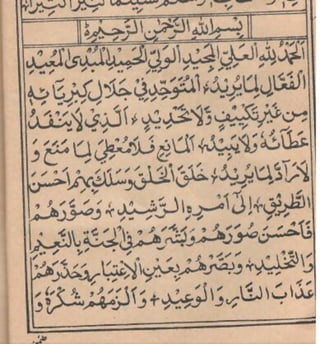 بِسْمِ اللهِ الرَّحْمٰنِ الرَّحِيْمِ
اَلْحَمْدُ لِلّٰهِ الْعَلِيِّ الْمَجِيْدِ الْوَلِيِّ الْحَمِيْدِ الْمُبْدِئِ الْمُعِيْدِ
الْفَعَّالِ لِمَا يُرِيْدُ، اَلْمُتَوَحِّدِ فِيْ جَلَالِ كِبْرِيَائِهٖ
مِنْ غَيْرِ تَكْيِيْفٍ وَّلَا تَحْدِيْدٍ، اَلَّذِيْ لَا يَنْفَدُ
عَطَائُهٗ وَلَا يَبِيْدُ، اَلْمَانِعِ فَلَا مُعْطِيَ لِمَا مَنَعَ وَ
لَا رَآدَّ لِمَا يُرِيْدُ، خَلَقَ الْخَلْقَ وَسَلَكَ بِهِمْ اَحْسَنَ
الطَّرِيْقِ، اِلٰى اَمْرِهِ الرَّشِيْدِ، وَصَوَّرَهُمْ
فَاَحْسَنَ صُوَرَهُمْ وَبَشَّرَهُمْ فِي الْجَنَّةِ بِالنَّعِيْمِ
وَالتَّخْلِيْدِ، وَبَصَّرَهُمْ بِعَيْنِ الْاِعْتِبَارِ وَحَذَّرَهُمْ
عَذَابَ النَّارِ وَالْوَعِيْدِ، وَاَلْزَمَهُمْ شُكْرَهٗ وَ